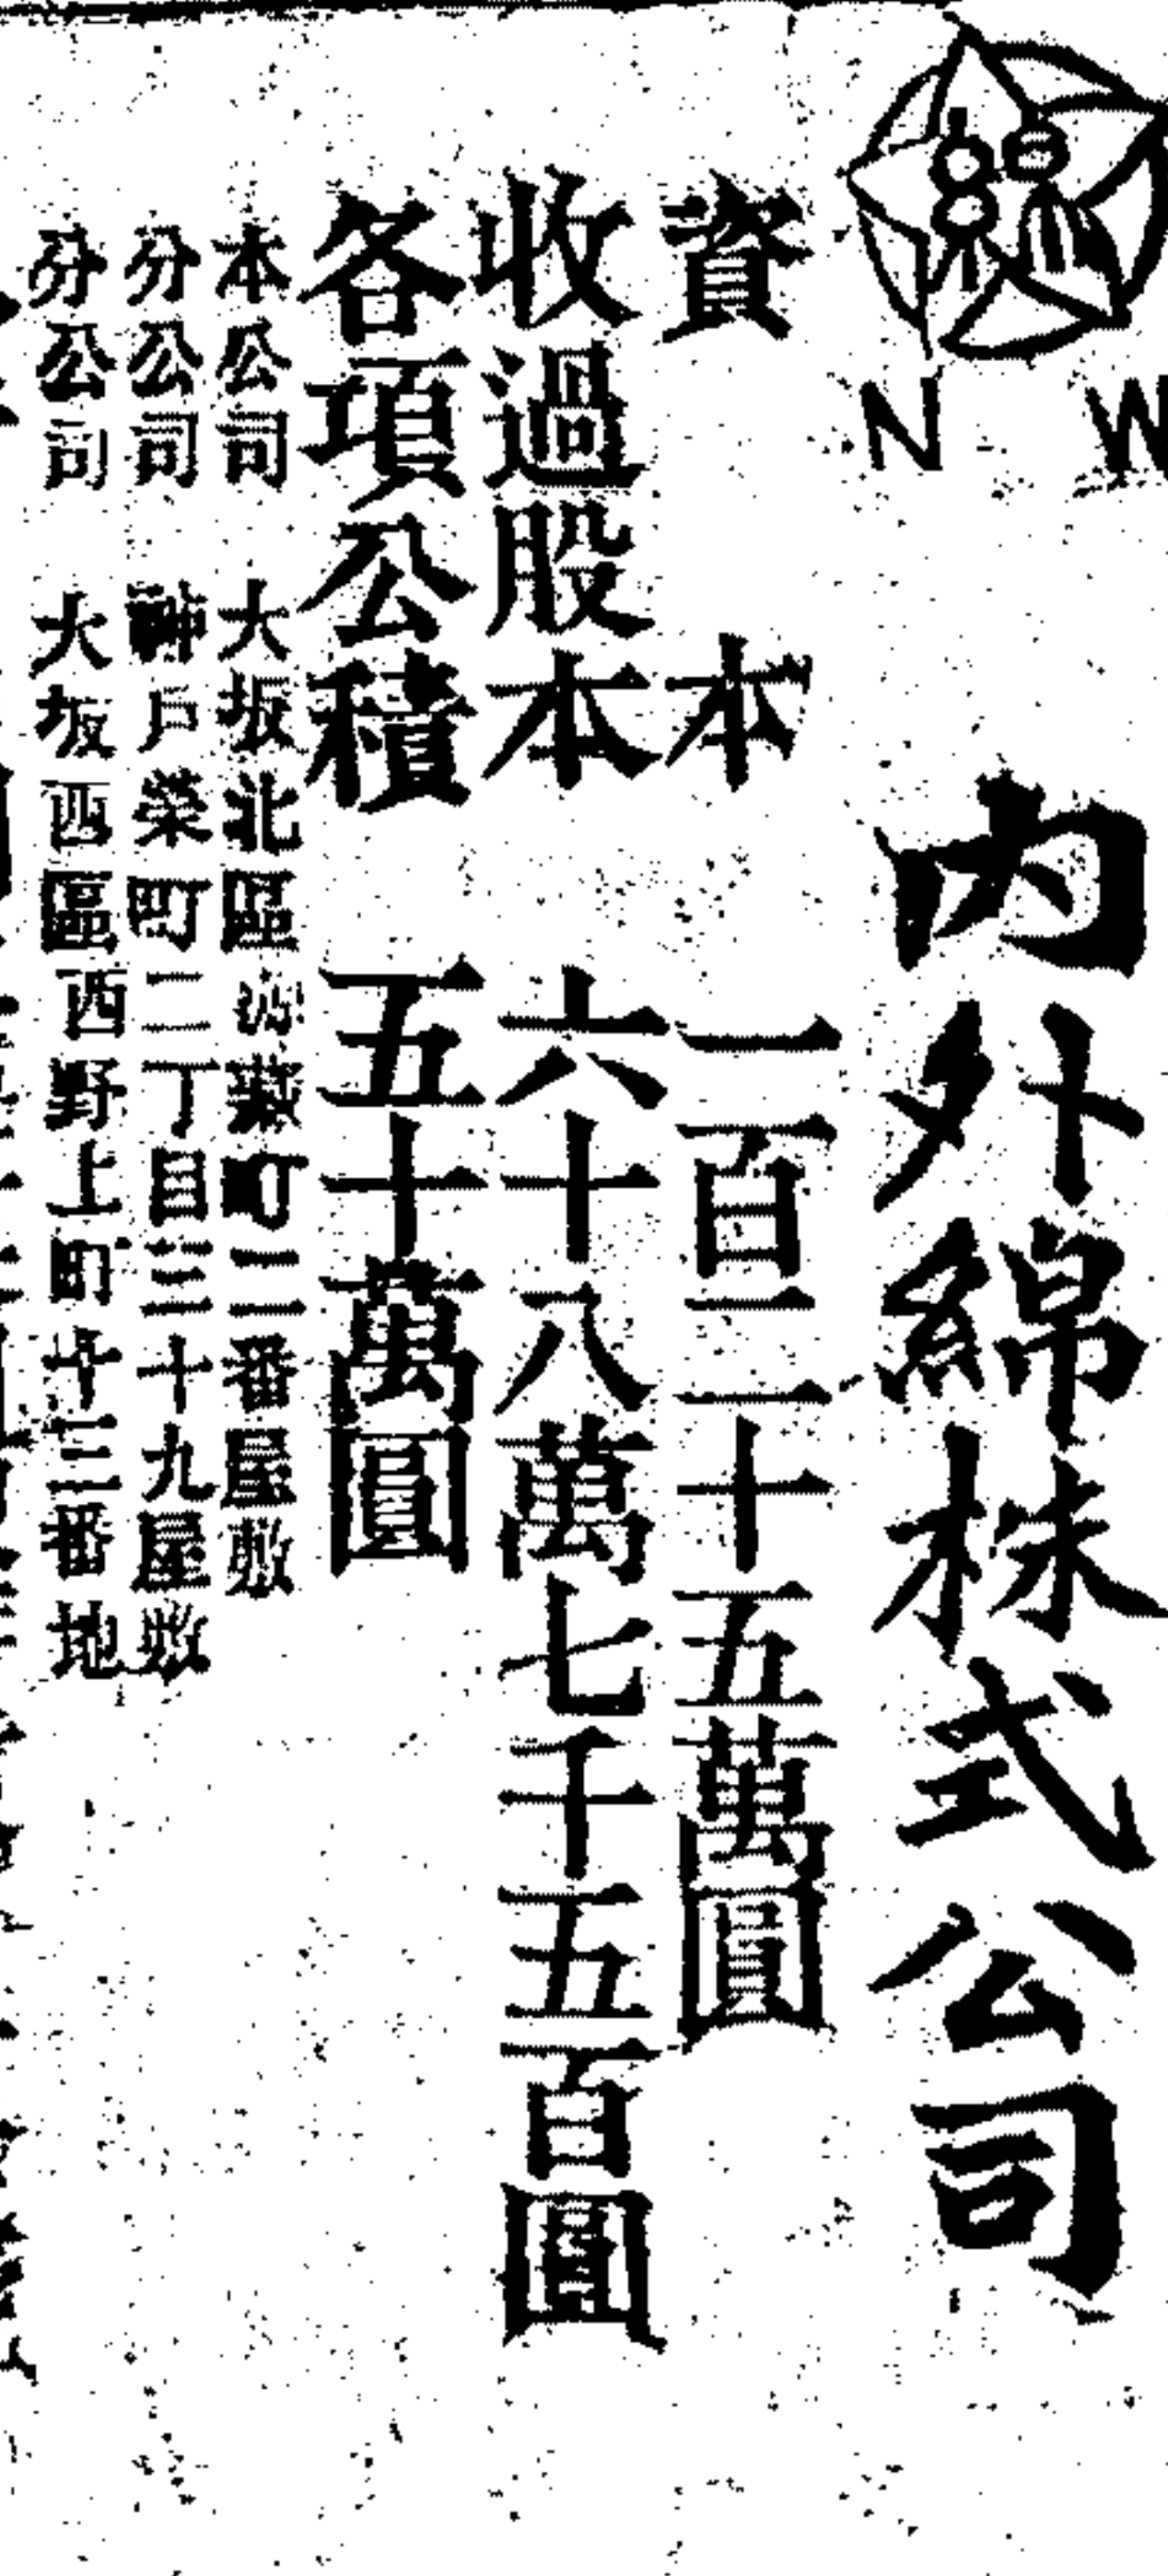 N W
內外綿株式公司
資本 一百二十五萬圓
收過股本 六十八萬七千五百圓
各項公積 五十萬圓
本公司 大坂北區 町二番屋敷
分公司 神戶榮町二丁目三十九屋敷
分公司 大坂西區西野上町 三番地